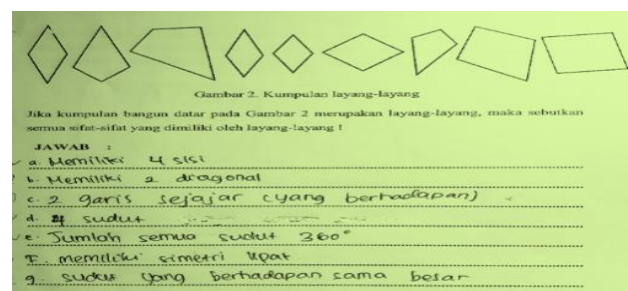 Gambar 2. Kumpulan layang-layang
Jika kumpulan bangun datar pada Gambar 2 merupakan layang-layang, maka sebutkan
semua sifat-sifat yang dimiliki oleh layang-layang !
JAWAB :
a. Memiliki 4 sisi
b. Memiliki 2 diagonal
c. 2 garis sejajar (yang berhadapan)
d. 4 sudut
e. Jumlah semua sudut 360°
F. memiliki simetri lipat
g. sudut yang berhadapan sama besar